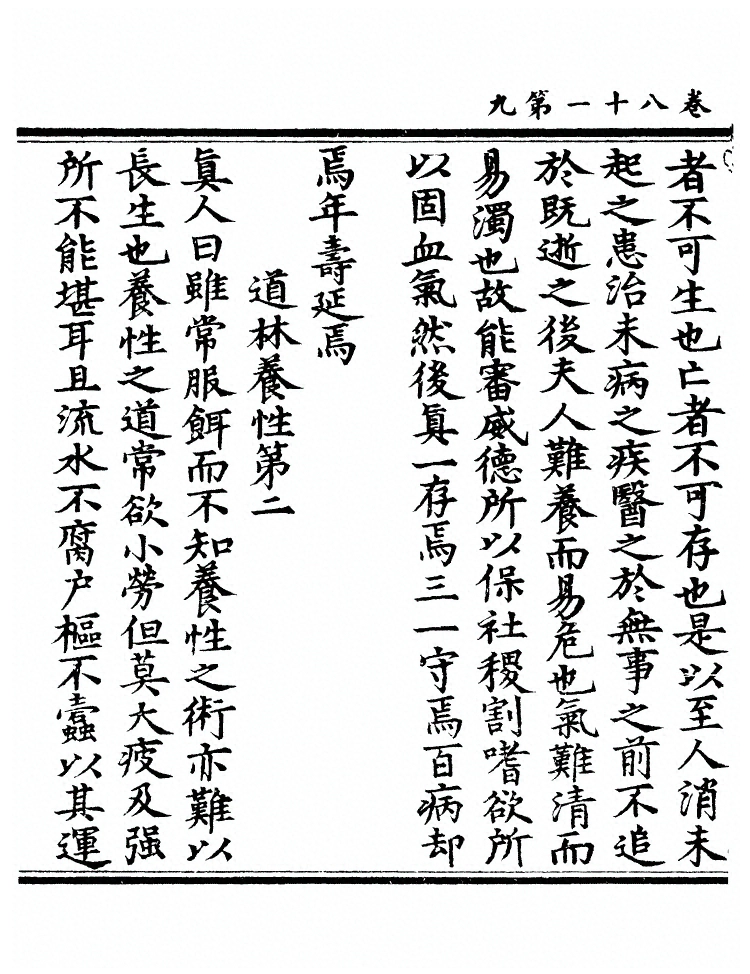 卷八十一第九
者不可生也亡者不可存也是以至人消未
起之患治未病之疾醫之於無事之前不追
於既逝之後夫人難養而易危也氣難清而
易濁也故能審威德所以保社稷割嗜欲所
以固血氣然後眞一存焉三一守焉百病却
焉年壽延焉
道林養性第二
眞人曰雖常服餌而不知養性之術亦難以
長生也養性之道常欲小勞但莫大疲及强
所不能堪耳且流水不腐户樞不蠹以其運